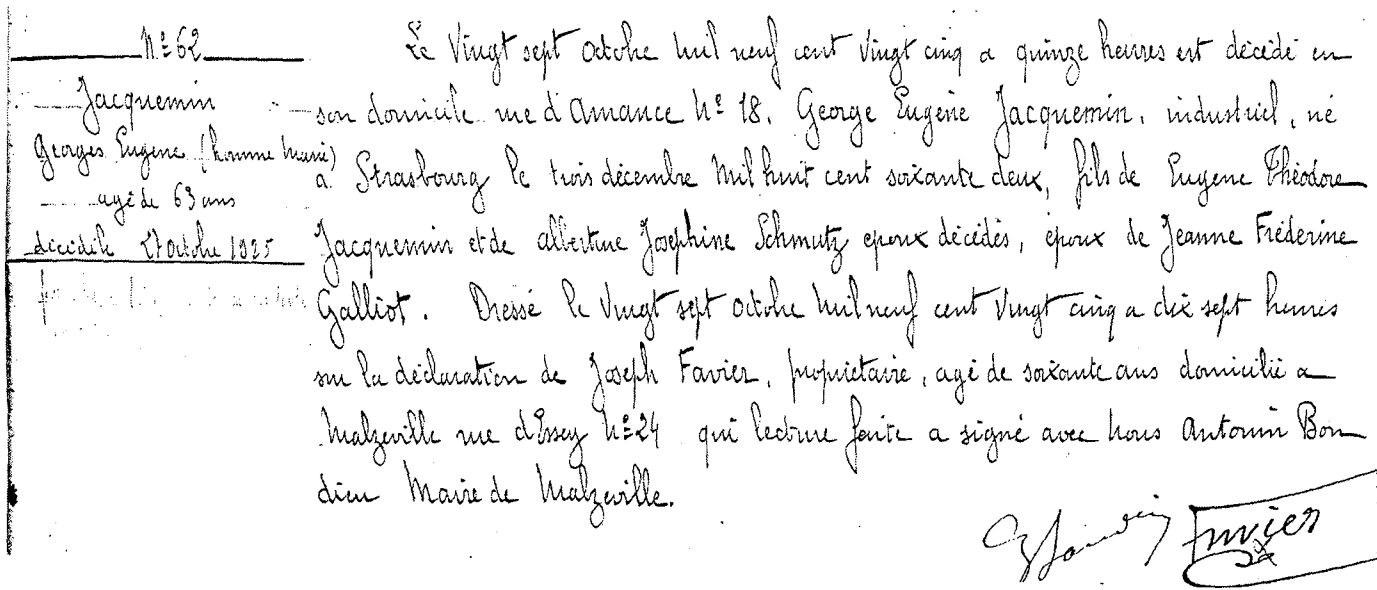 N° 62
Jacquemin
Georges Eugène (homme marié)
agé de 63 ans
décédé le 27 Octobre 1925
Le Vingt sept Octobre mil neuf cent vingt cinq a quinze heures est décédé en
son domicile rue d'Amance N° 18, George Eugène Jacquemin, industriel, né
a Strasbourg le trois décembre mil huit cent soixante deux, fils de Eugene Théodore
Jacquemin et de Albertine Josephine Schmutz epoux décédés, époux de Jeanne Fréderine
Galliot. Dressé le Vingt sept Octobre mil neuf cent vingt cinq a dix sept heures
sur la déclaration de Joseph Favier, propriétaire, agé de soixante ans domicilié a
Malzeville rue d'Essey N° 24 qui lecture faite a signé avec nous Antonin Bon
dieu Maire de Malzeville.
Favier